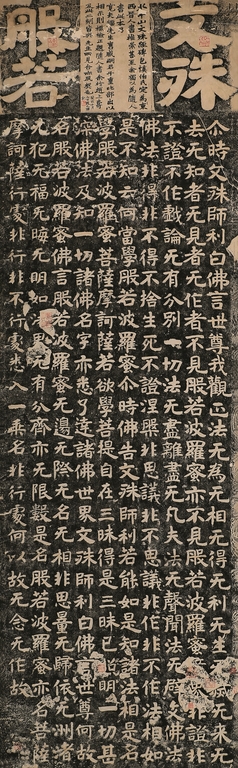 文殊
般若
尒時文殊師利白佛言世尊我觀正法无為无相无得无利无生无滅无來无
去无知者无見者无作者不見般若波羅蜜亦不見般若波羅蜜非證非
不證不作戲論无有分別一切法无盡離盡无凡夫法无聲聞法无辟支佛法
佛法非得非不得不捨生死不證涅槃非思議非不思議非作非不作法相如
是不知云何當學般若波羅蜜尒時佛告文殊師利若能如是知諸法相是名
學般若波羅蜜菩薩摩訶薩若欲學菩提自在三昧得是三昧已照明一切甚
深佛法及知一切諸佛名字亦悉了達諸佛世界文殊師利白佛言世尊何故
名般若波羅蜜佛言般若波羅蜜无邊无際无名无相非思量无歸依无洲渚
无犯无福无晦无明如法界无有分齊亦无限數是名般若波羅蜜亦名菩薩
摩訶薩行處非行非不行處悉入一乘名非行處何以故无念无作故